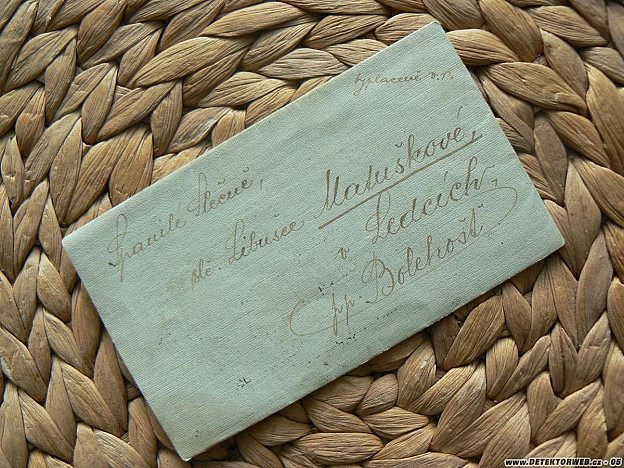 vyplaceně o. r.
Spanilé Slečně,
slč. Libušce Matuškové,
v Ledcích,
pp. Bolehošť
www.DETEKTORWEB.cz - 05